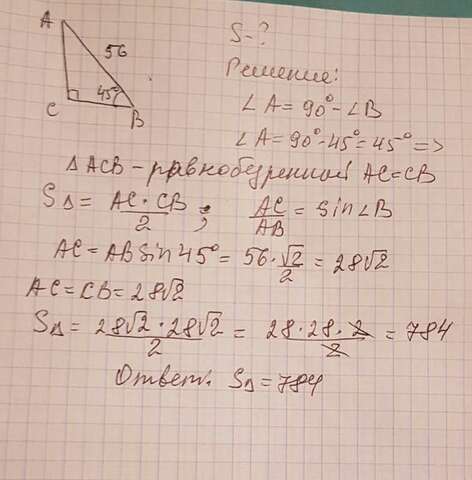 A
56
45°
C
B
S-?
Решение:
∠A = 90° - ∠B
∠A = 90° - 45° = 45° =>
Δ ACB - равнобедренный AC = CB
SΔ = AC · CB / 2 ; AC / AB = sin∠B
AC = AB sin 45° = 56 · √2 / 2 = 28√2
AC = CB = 28√2
SΔ = 28√2 · 28√2 / 2 = 28 · 28 · 2 / 2 = 784
Ответ: SΔ = 784